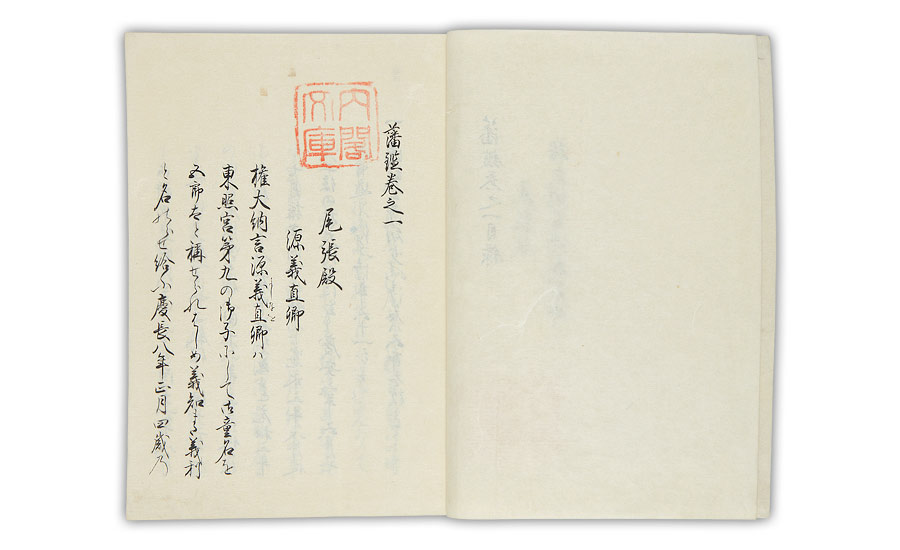 藩鑑巻之一
内閣
文庫
尾張殿
源義直卿
権大納言源義直卿ハ
よしなを
東照宮第九の御子にして御童名を
五郎太と称せられはしめ義知また義利
と名のらせ給ふ慶長八年正月四歳乃